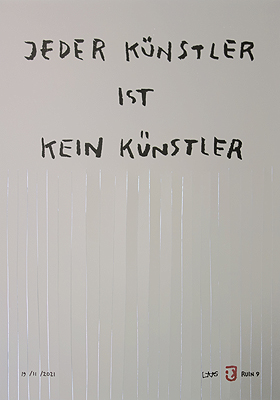 JEDER KÜNSTLER
IST
KEIN KÜNSTLER
19/11/2021
RUIN 9